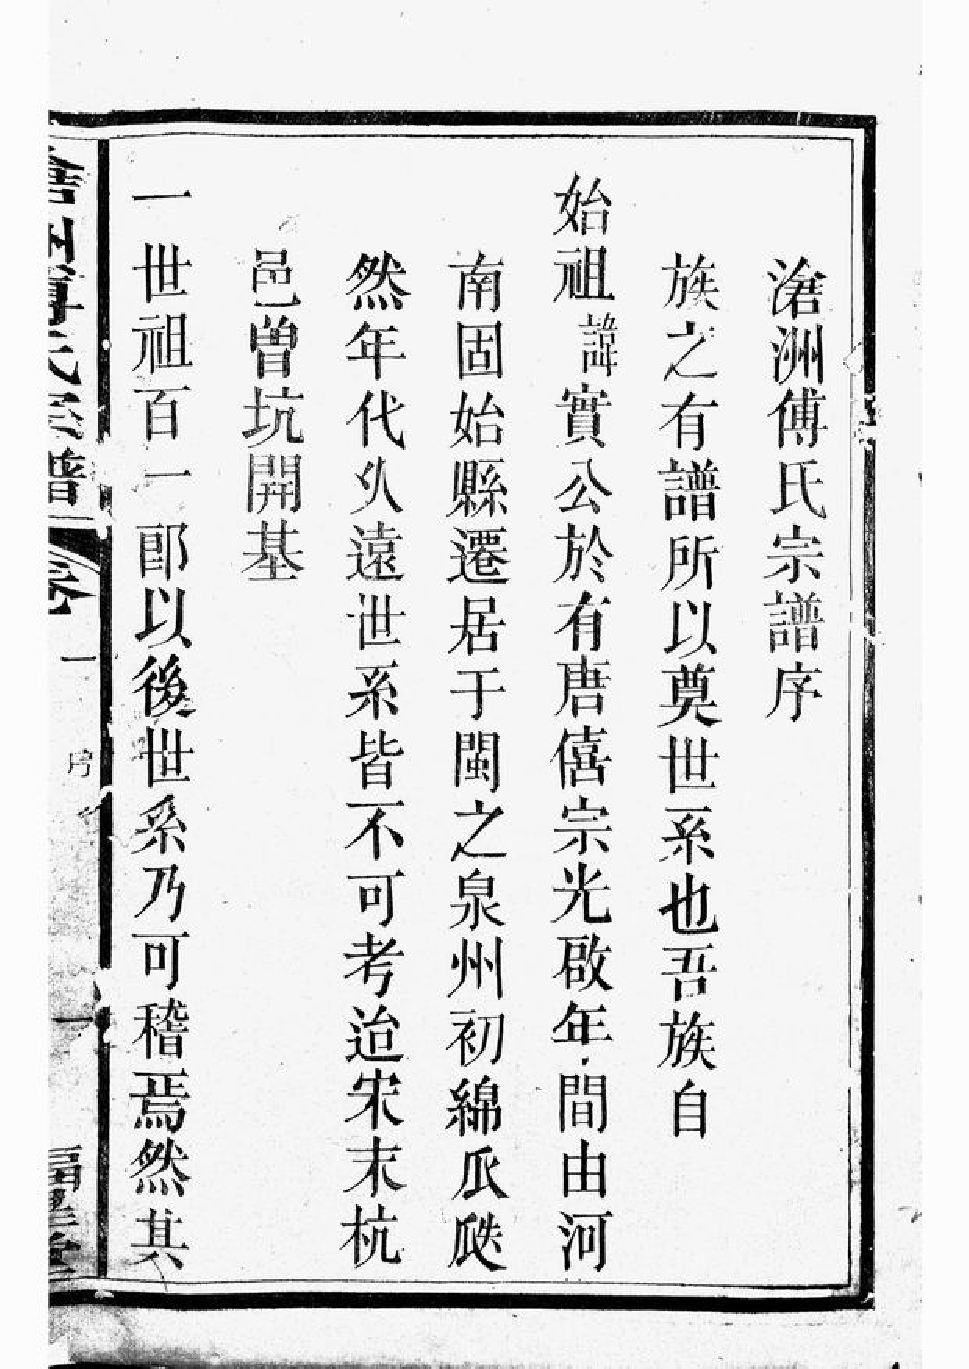 滄洲傅氏宗譜序
族之有譜所以奠世系也吾族自
始祖諱實公於有唐僖宗光啟年間由河
南固始縣遷居于閩之泉州初綿瓜瓞
然年代久遠世系皆不可考迨宋末杭
邑曾坑開基
一世祖百一郎以後世系乃可稽焉然其
滄州傅氏宗譜 卷一 序 一